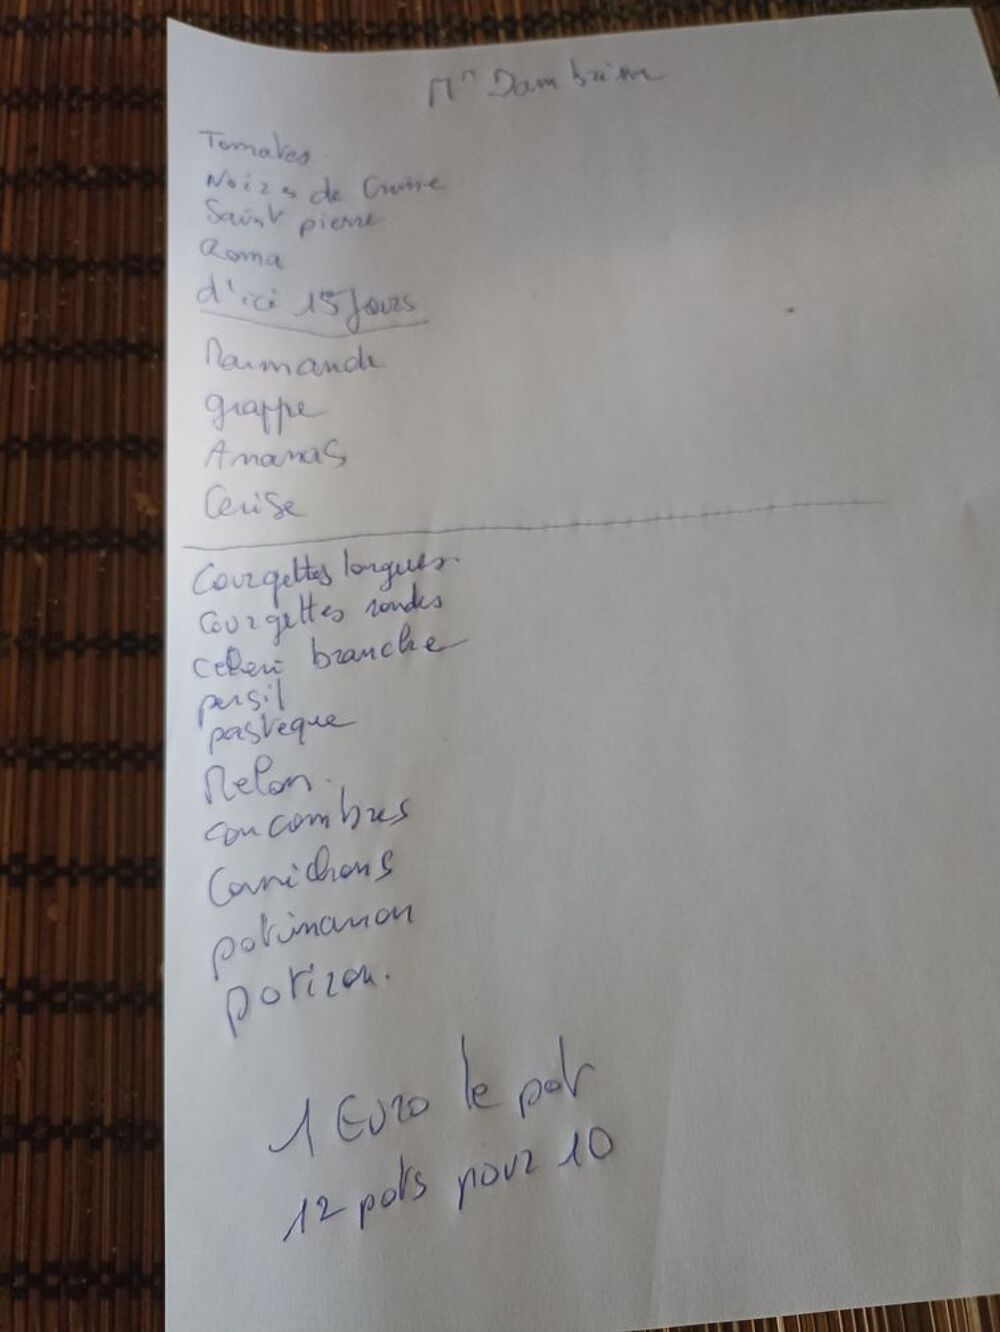 Mr Dambrine
Tomates
Noizes de Crimée
Saint pierre
Roma
d'ici 15 Jours
Marmande
grappe
Ananas
Cerise
Courgettes longues.
Courgettes rondes
Celeri branche
persil
pasteque
Melon.
concombres
Cornichons
potimarron
potizon.
1 Euro le pot
12 pots pour 10